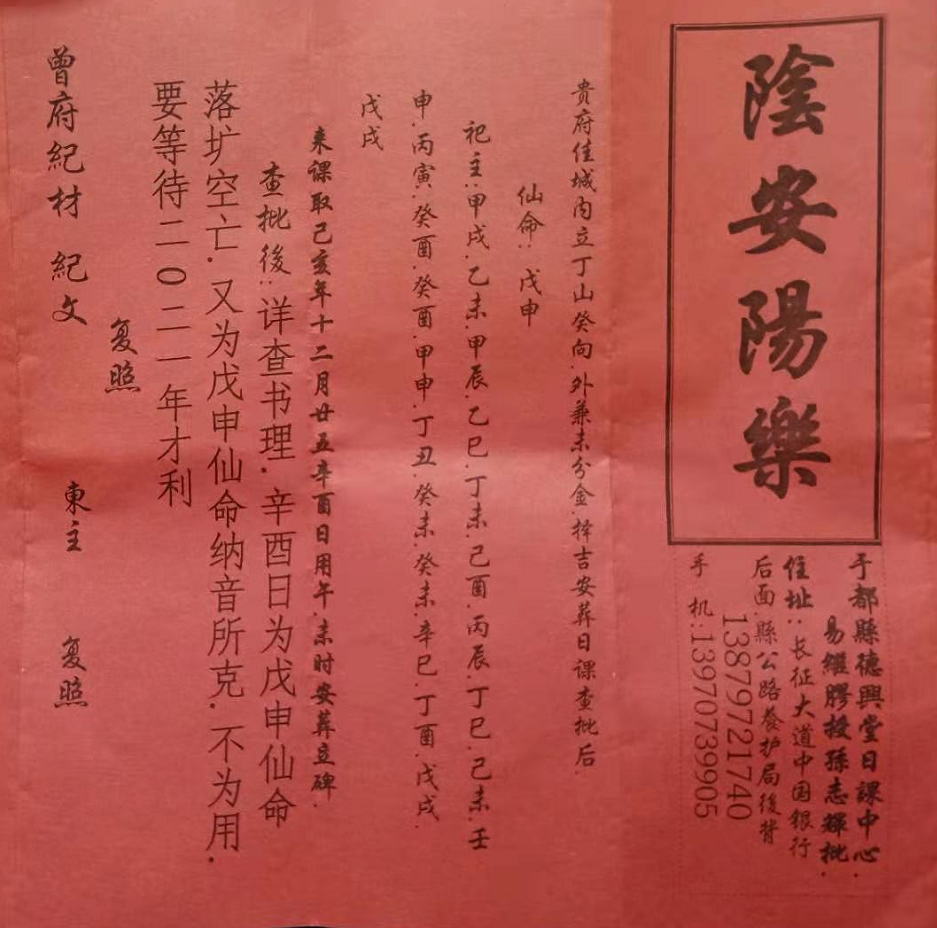 陰安陽樂
于都縣德興堂日課中心.
易繼膠授孫志輝批.
住址：长征大道中国銀行
后面.縣公路養护局後背
13879721740
手 机:13970739905
贵府佳城内立丁山癸向.外兼未分金.择吉安葬日课查批后.
仙命：戊申
祀主:甲戌.乙未.甲辰.乙巳.丁未.己酉.丙辰.丁巳.己未.壬
申.丙寅.癸酉.癸酉.甲申.丁丑.癸未.癸未.辛巳.丁酉.戊戌.
戊戌
来課取己亥年十二月廿五辛酉日用午.未时安葬立碑.
查批後:详查书理.辛酉日为戊申仙命
落圹空亡.又为戊申仙命纳音所克.不为用.
要等待二0二一年才利
复照
曾府紀材 紀文 東主 复照